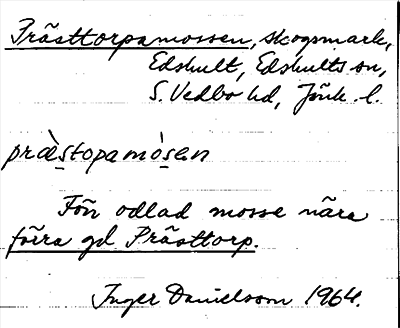 Prästtorpamossen, skogsmark,
Edshult, Edshults sn,
S. Vedbo hd, Jönk. l.
præ̀stopamòsen
Förr odlad mosse nära
förra gd Prästtorp.
Inger Danielsson 1964.